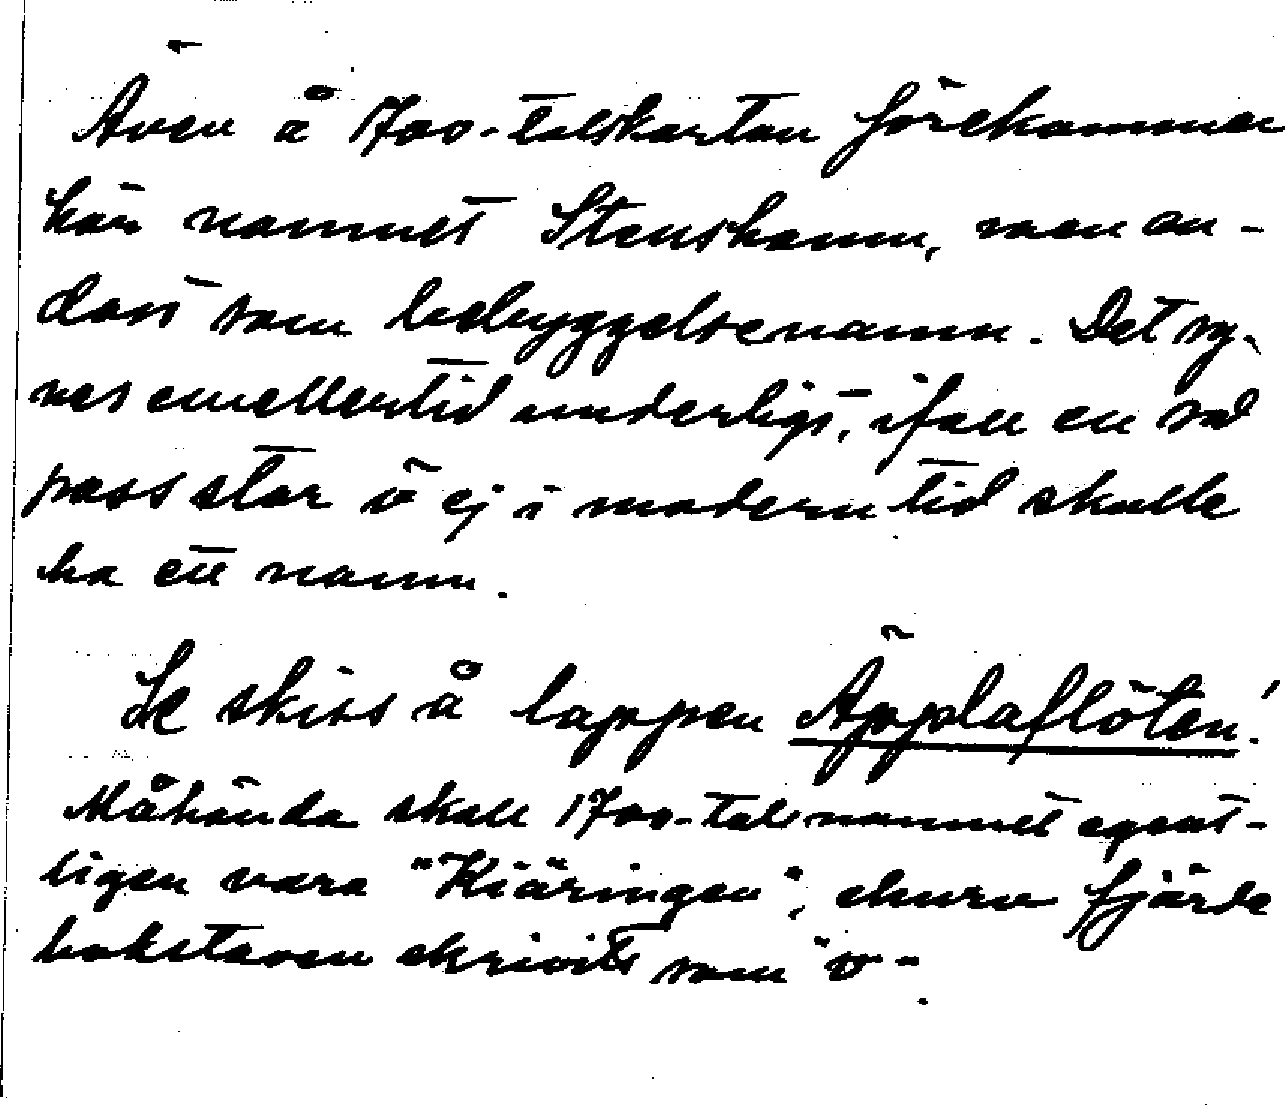 Även å 1700-talskartan förekommer
här namnet Stenshamn, men en-
dast som bebyggelsenamn. Det sy-
nes emellertid underligt, ifall en så
pass stor ö ej i modern tid skulle
ha ett namn.
Se skiss å lappen Äpplaflöten!
Måhända skall 1700-talsnamnet egent-
ligen vara "Kiäringen", ehuru fjärde
bokstaven skrivits som "v".